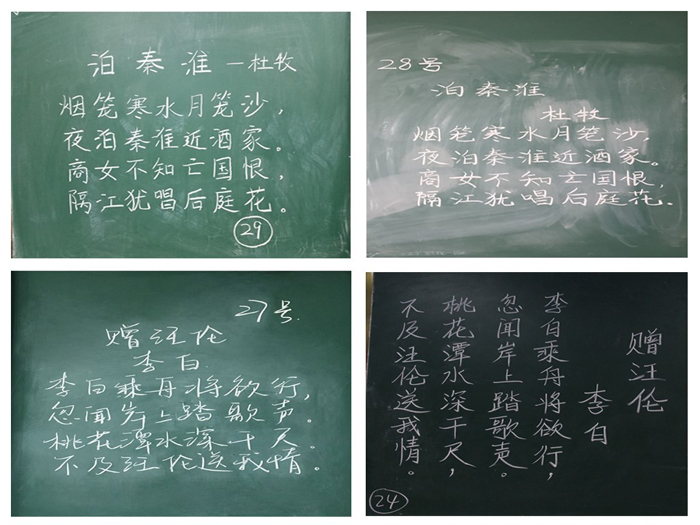 泊秦淮 —杜牧
烟笼寒水月笼沙，
夜泊秦淮近酒家。
商女不知亡国恨，
隔江犹唱后庭花。
29
28号
泊秦淮
杜牧
烟笼寒水月笼沙，
夜泊秦淮近酒家。
商女不知亡国恨，
隔江犹唱后庭花.
27号.
赠汪伦
李白
李白乘舟将欲行，
忽闻岸上踏歌声。
桃花潭水深千尺.
不及汪伦送我情。
赠汪伦
李白
李白乘舟将欲行，
忽闻岸上踏歌声。
桃花潭水深千尺，
不及汪伦送我情。
24